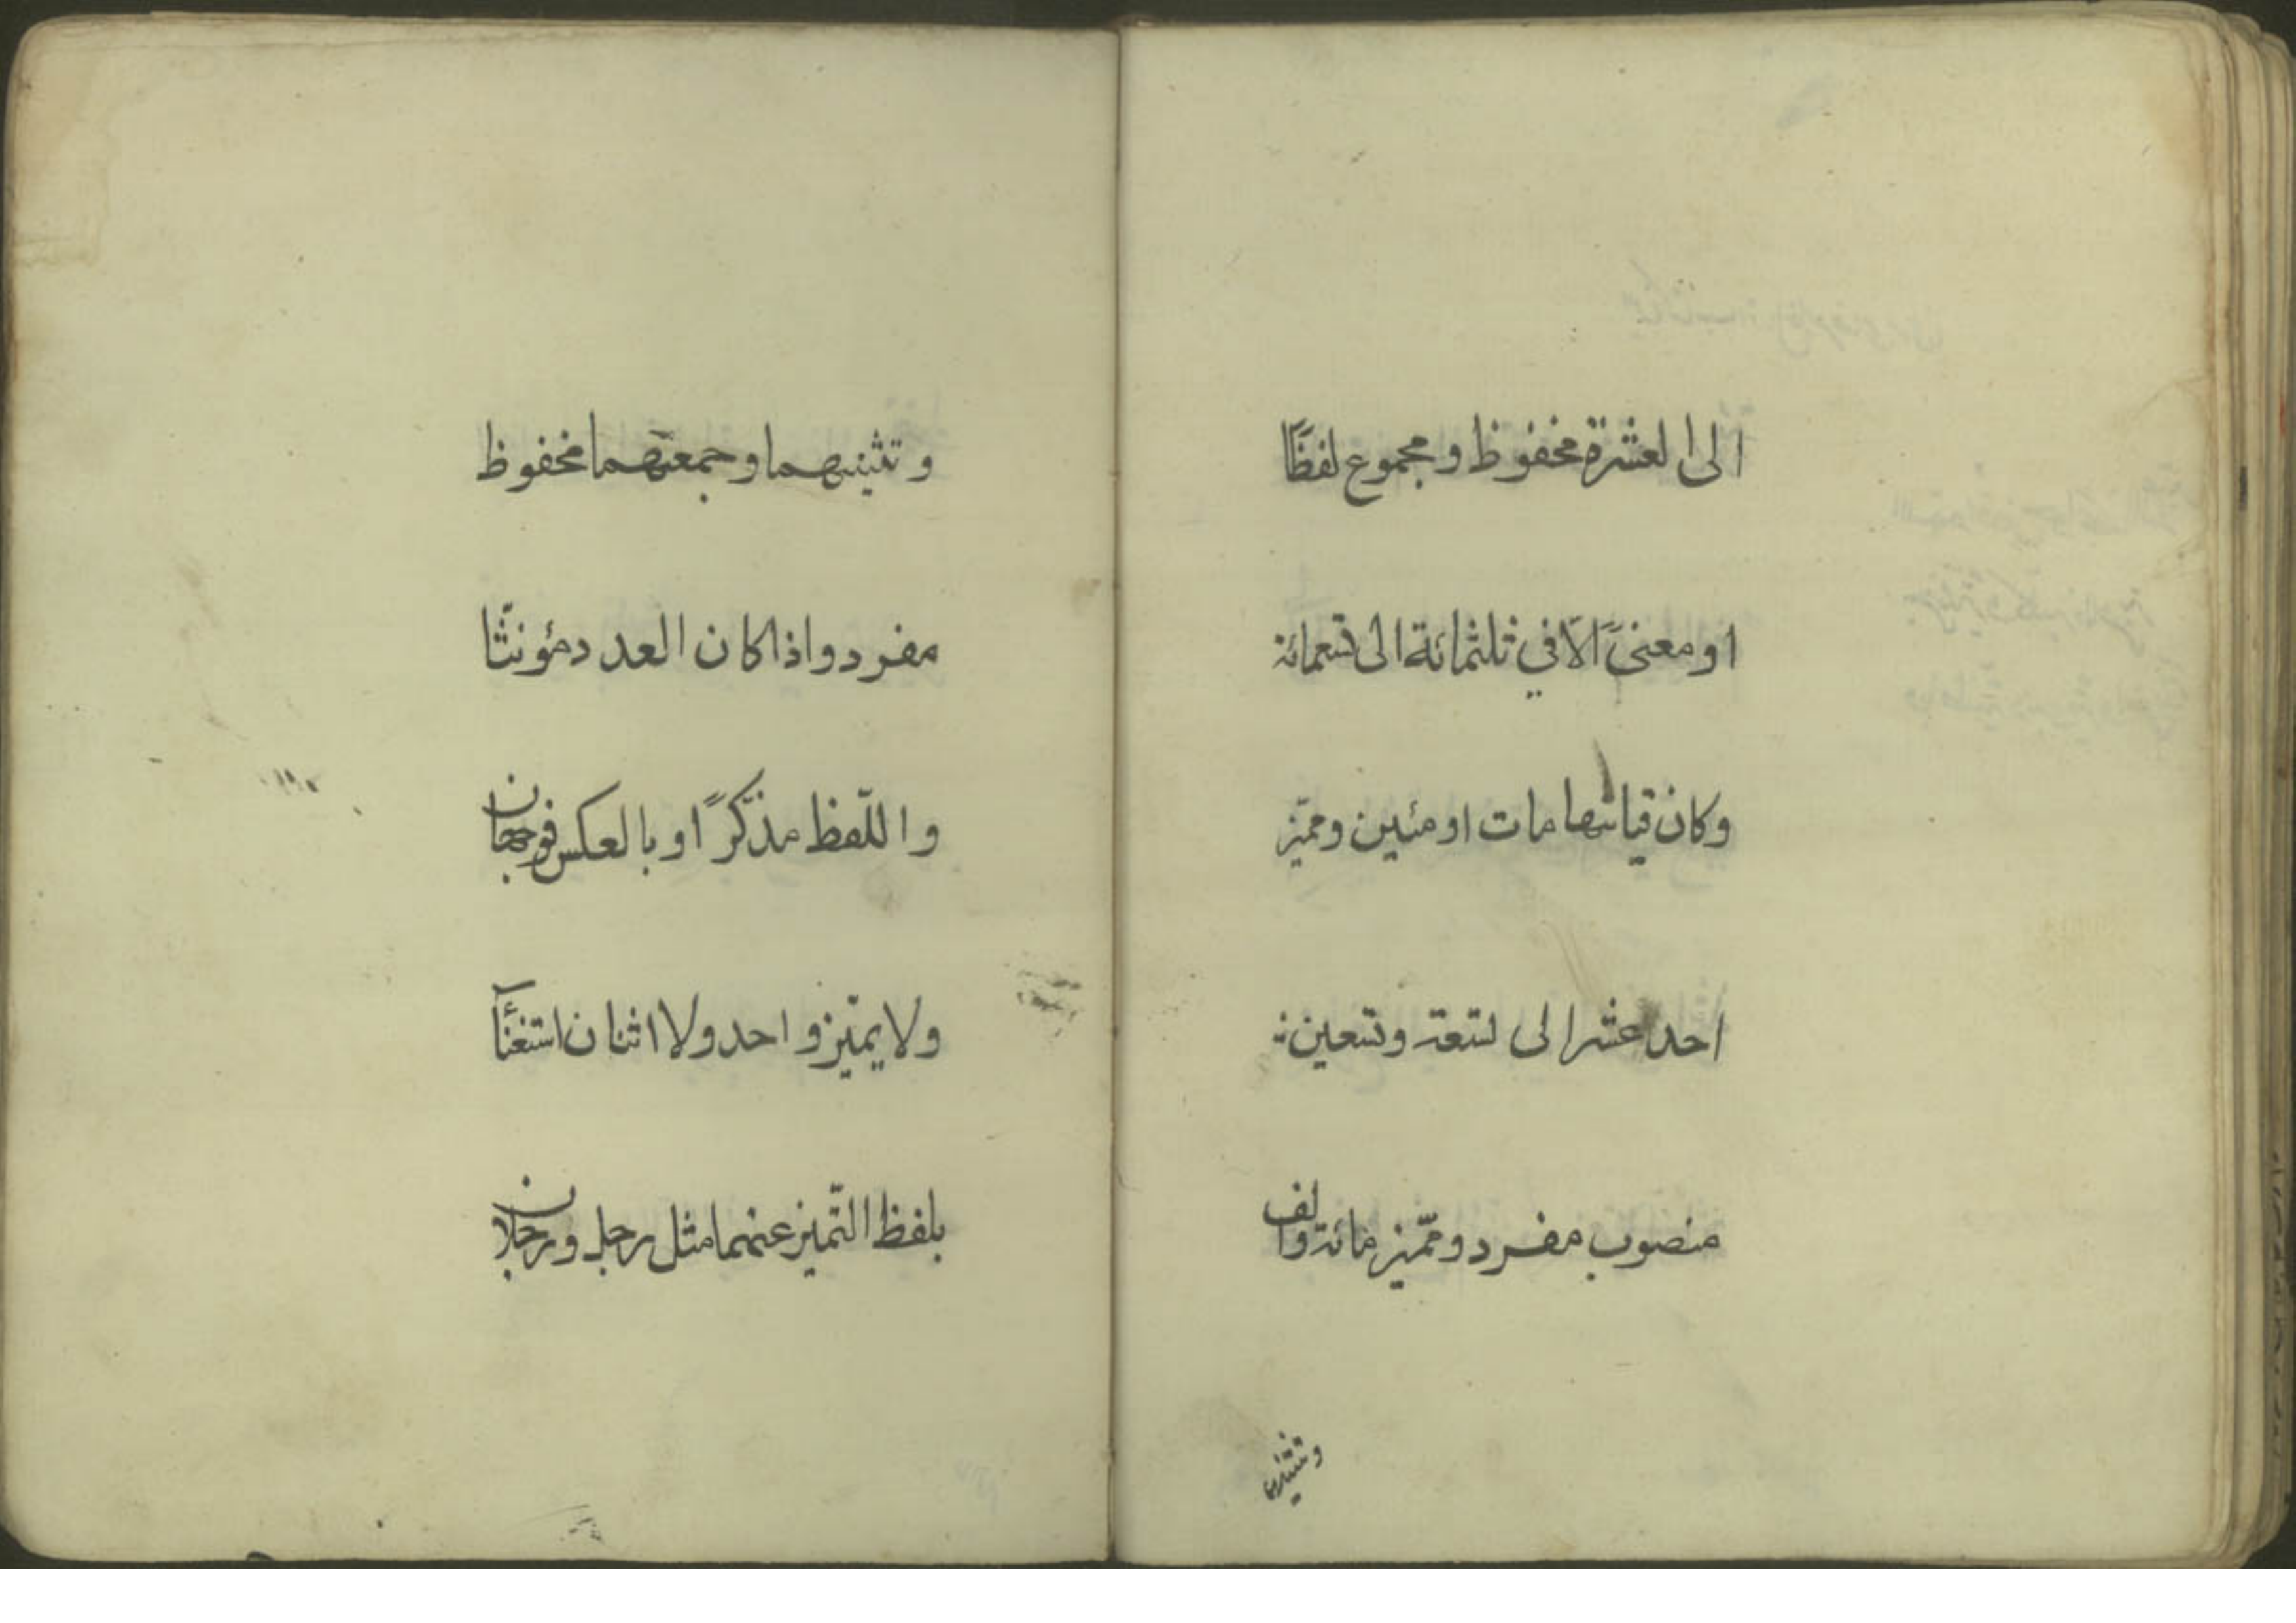 الى العشرة مخفوظ ومجموع لفظًا
او معنىً الّا في ثلثمائة الى تسعمائة
وكان قياسها مات او مئين ومميّز
احد عشر الى تسعة وتسعين
منصوب مفرد ومميّز مائة والف
وتثنيتهما
وتثنيتهما وجمعهما مخفوظ
مفرد واذا كان العدد مؤنثّا
واللّفظ مذكّرًا او بالعكس فوجهان
ولا يميّز واحد ولا اثنان استغنآً
بلفظ التّميز عنهما مثل رجل ورجلان